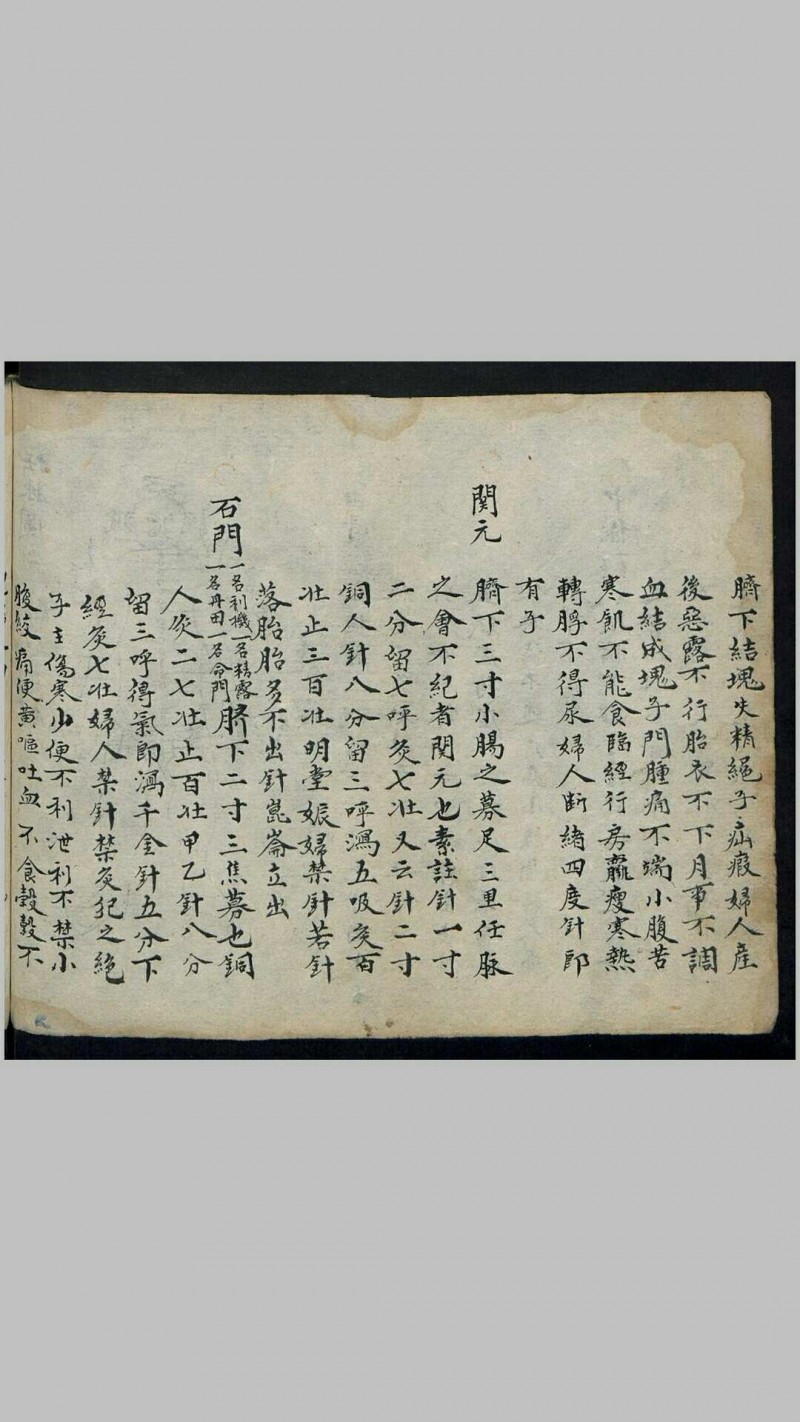 臍下結塊失精繩子疝瘕婦人産
後惡露不行胎衣不下月事不調
血結成塊子門腫痛不端小腹苦
寒飢不能食臨經行房羸瘦寒熱
轉脬不得尿婦人断緒四度針即
有子
関元
臍下三寸小腸之募足三里任脉
之會不紀者関元也素註針一寸
二分留七呼灸七壯又云針二寸
銅人針八分留三呼瀉五吸灸百
壯止三百壯明堂娠婦禁針若針
落胎胎多不出針崑崙立出
石門
一名利機一名精露
一名丹田一名命門
臍下二寸三焦募也銅
人灸二七壯止百壯甲乙針八分
留三呼得氣即瀉千金針五分下
經灸七壯婦人禁針禁灸犯之絶
子主傷寒小便不利泄利不禁小
腹絞痛便黄嘔吐血不食穀穀不